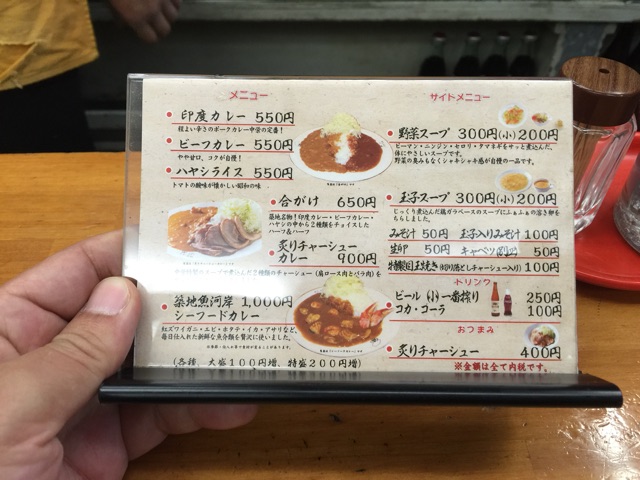 メニュー
印度カレー 550円
程よい辛さのポークカレー中栄の定番!
ビーフカレー 550円
やや甘口、コクが自慢!
ハヤシライス 550円
トマトの酸味が懐かしい昭和の味
合がけ 650円
築地名物!印度カレー・ビーフカレー・
ハヤシの中から2種類をチョイスした
ハーフ&ハーフ
炙りチャーシュー
カレー 900円
中華特製スープで煮込んだ2種類のチャーシュー(肩ロース肉とバラ肉)を
築地魚河岸 1,000円
シーフードカレー
紅ズワイガニ・エビ・ホタテ・イカ・アサリなど、
毎日仕入れた新鮮な魚介類を贅沢に使いました。
(各種、大盛100円増、特盛200円増)
サイドメニュー
野菜スープ 300円(小)200円
ピーマン・ニンジン・セロリ・タマネギをサッと煮込んだ、
体にやさしいスープです。
野菜の臭みもなくシャキシャキ感が自慢の一品です。
玉子スープ 300円(小)200円
じっくり煮込んだ鶏ガラベースのスープにふぁふぁの溶き卵を
もらしました。
みそ汁 50円 玉子入りみそ汁 100円
生卵 50円 キャベツ 50円
特製玉子焼き(切り落としチャーシュー入り)100円
ドリンク
ビール(小)一番搾り 250円
コカ・コーラ 100円
おつまみ
炙りチャーシュー 400円
※金額は全て内税です。